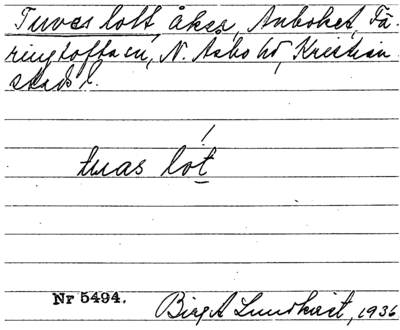 Tuves lott, åker, Anboket, Fä-
ringtofta sn, N. Åsbo hd, Kristian-
stads l.
tuas lot
Nr 5494.
Birgit Lundkvist, 1936